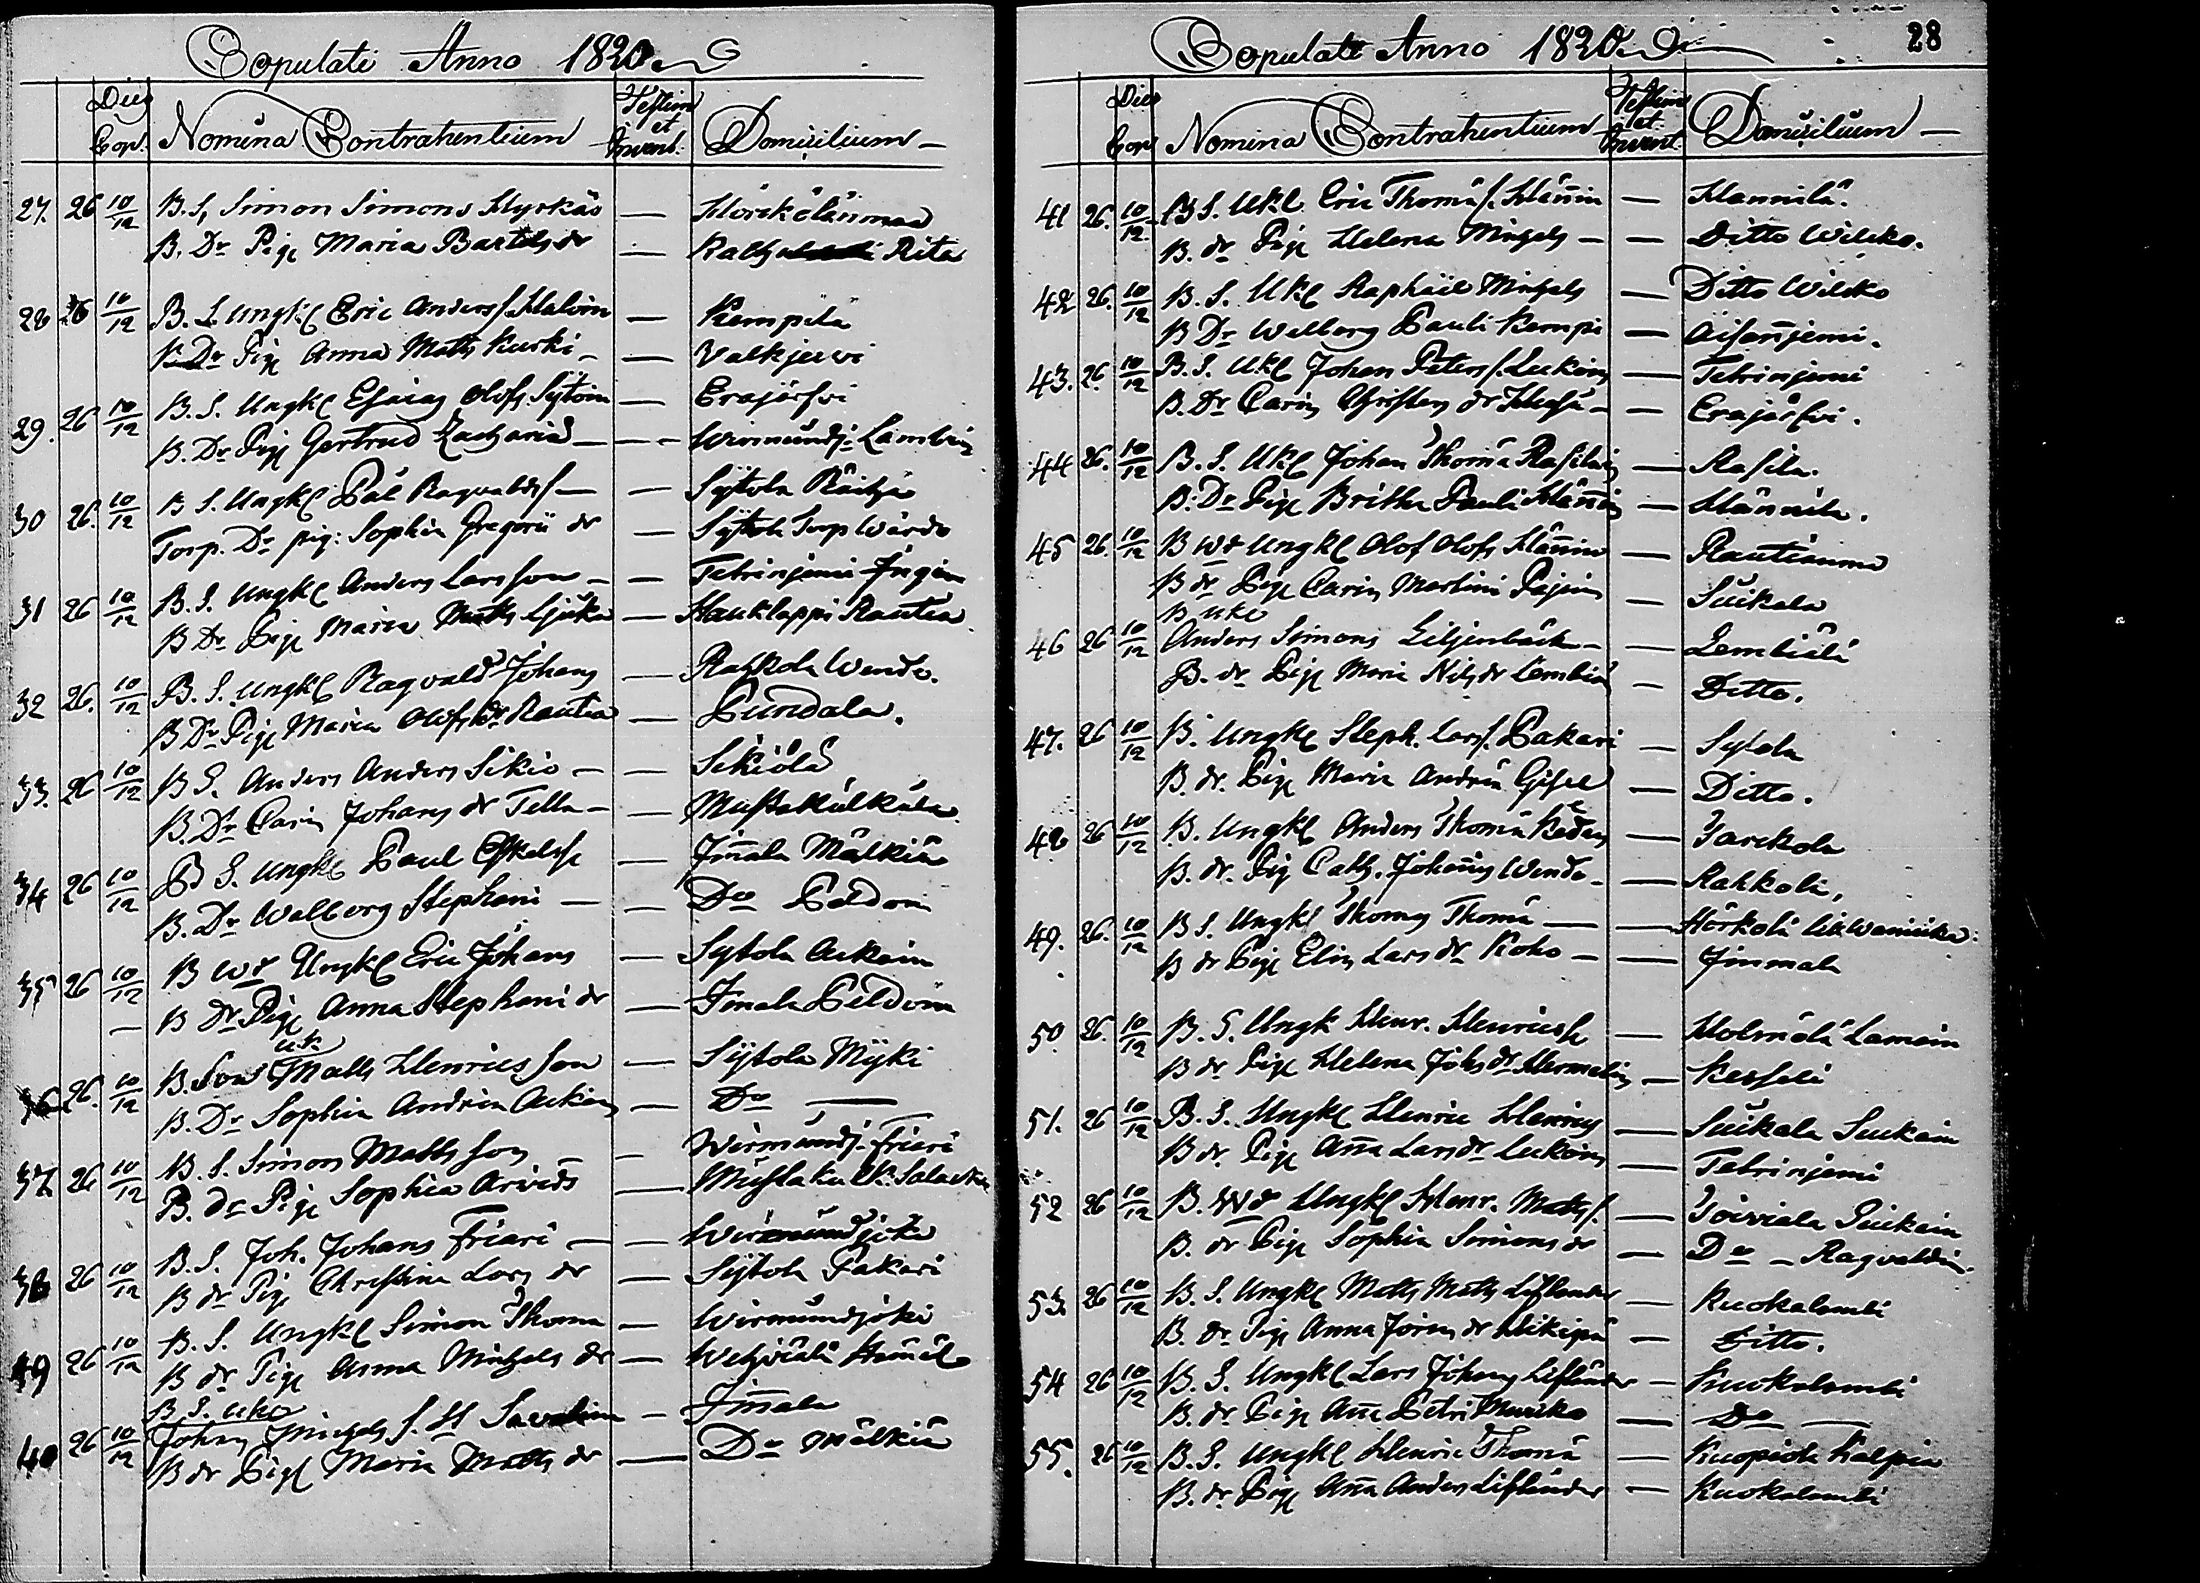 Copulati Anno 1820
Dies Cop. Nomina Contrahentium Testim et Invent. Domicilium
27. 26 10/12 B. S. Simon Simons Hyrkäs — Hörckölänmaa
B. Dr Pig Maria Bartels dr — Rita
28 26 10/12 B. S. Ungkl Eric Anders s. Haloin — Kempilä
B Dr Pig Anna Matts Kurki — Valkjerwi
29. 26 10/12 B. S. Ungkl Esaias Olofs. Sytöin — Erajärfwi
B. Dr Pig Gertrud Zachariæ — Wirmundj: Lamb
30 26. 10/12 B S. Ungkl Pål Ragvalds s — Sytola Räihä
Torp. Dr pig: Sophia Gregorii dr — Sytola Torp Wärde
31 26 10/12 B. S. Ungkl Anders Larsson — Tetrinjemi
B Dr Pig Maria Matts — Hauklappi Rautia
32 26. 10/12 B. S. Ungkl Ragvald Johans — Rahkola Wende.
B Dr Pig Maria Olofs dr Rautia — Pundala.
33. 26 10/12 B S. Anders Anders Sikiö — Sikiölä
B. Dr Carin Johans dr Tella — Mustakulkula
34 26 10/12 B S. Ungkl Paul Eskels s — Jm̃ala Mälkiä
B. Dr Walborg Stephani — Do Peldoin
35 26 10/12 B Wd Ungkl Eric Johans — Sytola Ackain
— B Dr Pig Anna Stephani dr — Jmala Peldoin
36 26. 10/12 B. Son uk Matts Henricsson — Sytola Myki
B. Dr Sophia Andreæ Ackain — Do —
37. 26 10/12 B. S. Simon Mattsson — Wirmundj. Friari
B. dr Pig Sophia Arvids —
38 26 10/12 B. S. Joh. Johans Friari — Wirmundjoki
B dr Pig Christina Lars dr — Sytola Pakari
39 26 10/12 B. S. Ungkl Simon Thomæ — Wirmundjoki
B dr Pig Anna Michels dr —
40 26 10/12 B. S. Ukl Johan Michels s. — Jm̃ala
B dr Pig Maria Matts dr — Do Mälkiä
28
Copulati Anno 1820
Dies Cop Nomina Contrahentium Testim et Invent. Domicilium
41 26. 10/12 B S. Ukl Eric Thomæ s. Hän̄in — Hannilä.
B. dr Pig Helena Michels — Ditto Wilcko.
42 26. 10/12 B. S. Ukl Raphael Michels — Ditto Wilcko
B Dr Walborg Pauli Kempi —
43. 26 10/12 B. S. Ukl Johan Peters s. Luckoin — Tetrinjemi
B. Dr Carin Christers dr — Erajärfwi.
44 26. 10/12 B. S. Ukl Johan Thomæ Rasilain — Rasila.
B. Dr Pig Britha Pauli Hän̄in — Hännilä.
45 26. 10/12 B Wd Ungkl Olof Olofs Hän̄in — Rautianma
B dr Pig Carin Martini Pajain — Suikala
46 26 10/12 B Ukl Anders Simons Liljenbäck — Lembiälä
B. dr Pig Maria Nils dr Lembiä — Ditto.
47. 26 10/12 B. Ungkl Steph. Lars s. Pakari — Sytola
B. dr Pig Maria Andreæ — Ditto.
48 26 10/12 B. Ungkl Anders Thomæ — Jarckola
B. dr. Pig Cath. Johan̄is Wende — Rahkola,
49. 26. 10/12 B S. Ungkl Thomas Thomæ —
B dr Pig Elin Lars dr Koho — Jmmala
50 26. 10/12 B. S. Ungk Henr. Henrics s — Holmälä
B dr Pig Helena Johs dr — Kesselä
51. 26 10/12 B. S. Ungkl Henric Henrics — Suikala Suckain
B dr. Pig An̄a Lars dr Luckoin — Tetrinjemi
52 26 10/12 B. Wd Ungkl Henr. Matts s. — Joiviala Suckain
B. dr Pig Sophia Simons dr — Do — Ragvaldin
53. 26 10/12 B. S. Ungkl Matts Matts Liflander — Kuokalambi
B. dr Pig Anna Jörens dr — Ditto.
54 26 10/12 B. S. Ungkl Lars Johans Liflander — Kuokalambi
B. dr Pig An̄a Petri — Do —
55. 26 10/12 B. S. Ungkl Henric Thomæ —
B. dr Pig An̄a Anders Liflander — Kuokalambi